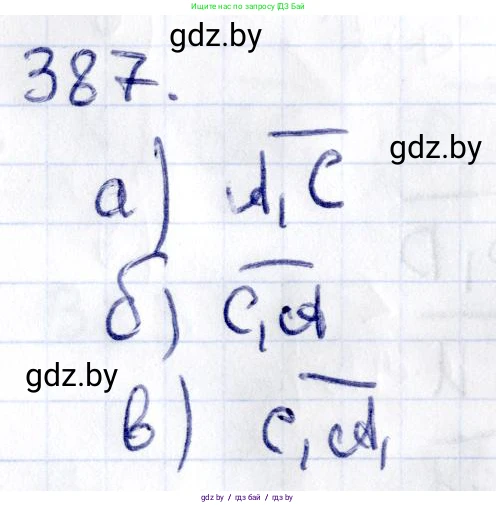 Ищите нас по запросу ГДЗ Бай
gdz.by
387.
gdz.by
а) A₁C
б) C₁A
gdz.by
в) C₁A₁
gdz.by / гдз бай / гдз by